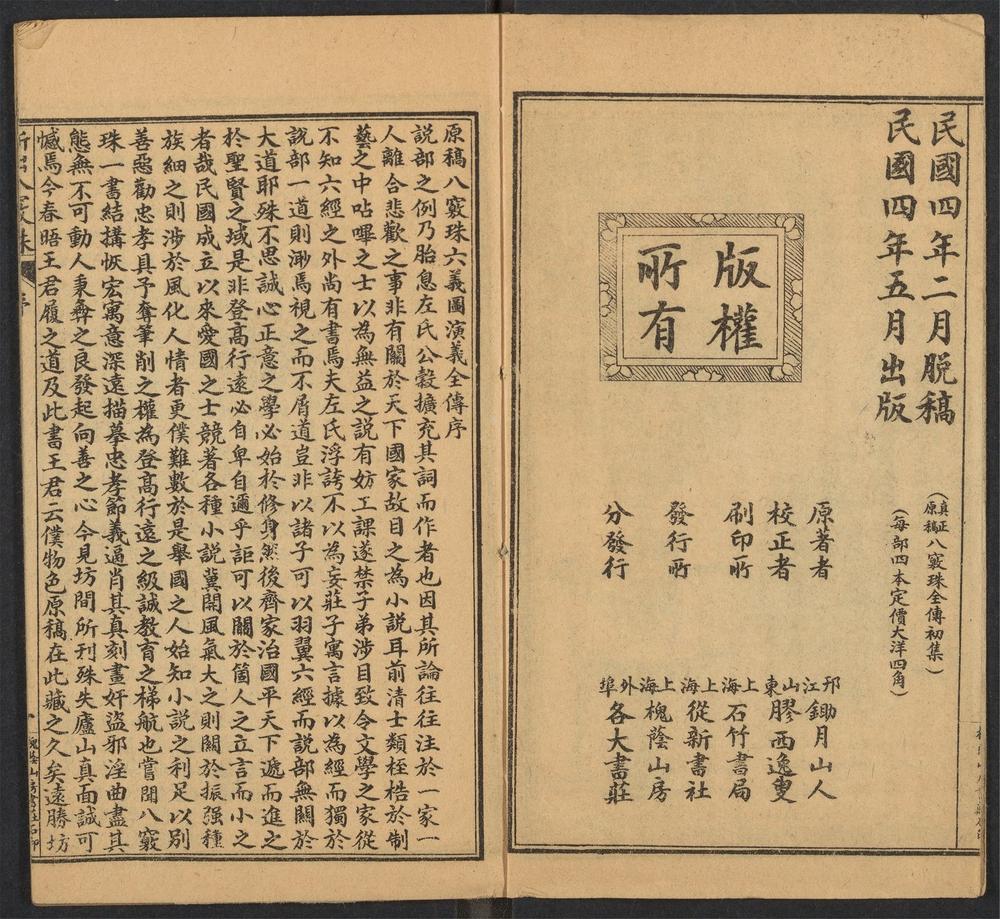 民國四年二月脫稿
民國四年五月出版
版權
所有
(真正原稿八竅珠全傳初集)
(每部四本定價大洋四角)
原著者 邗江鋤月山人
校正者 山東膠西逸叟
刷印所 上海石竹書局
發行所 上海從新書社
上海槐蔭山房
分發行 外埠各大書莊
原稿八竅珠六義圖演義全傳序
說部之例乃胎息左氏公穀擴充其詞而作者也因其所論往往注於一家一
人離合悲歡之事非有關於天下國家故目之為小說耳前清士類桎梏於制
藝之中呫嗶之士以為無益之說有妨工課遂禁子弟涉目致令文學之家從
不知六經之外尚有書焉夫左氏浮誇不以為妄莊子寓言據以為經而獨於
說部一道則渺焉視之而不屑道豈非以諸子可以羽翼六經而說部無關於
大道耶殊不思誠心正意之學必始於修身然後齊家治國平天下遞而進之
於聖賢之域是非登高行遠必自卑自邇乎詎可以關於箇人之立言而小之
者哉民國成立以來愛國之士競著各種小說冀開風氣大之則關於振强種
族細之則涉於風化人情者更僕難數於是舉國之人始知小說之利足以別
善惡勸忠孝具予奪筆削之權為登高行遠之級誠教育之梯航也嘗聞八竅
珠一書結搆恢宏寓意深遠描摹忠孝節義逼肖其真刻畫奸盜邪淫曲盡其
態無不可動人秉彝之良發起向善之心今見坊間所刋殊失廬山真面誠可
憾焉今春晤王君履之道及此書王君云僕物色原稿在此藏之久矣遠勝坊
序